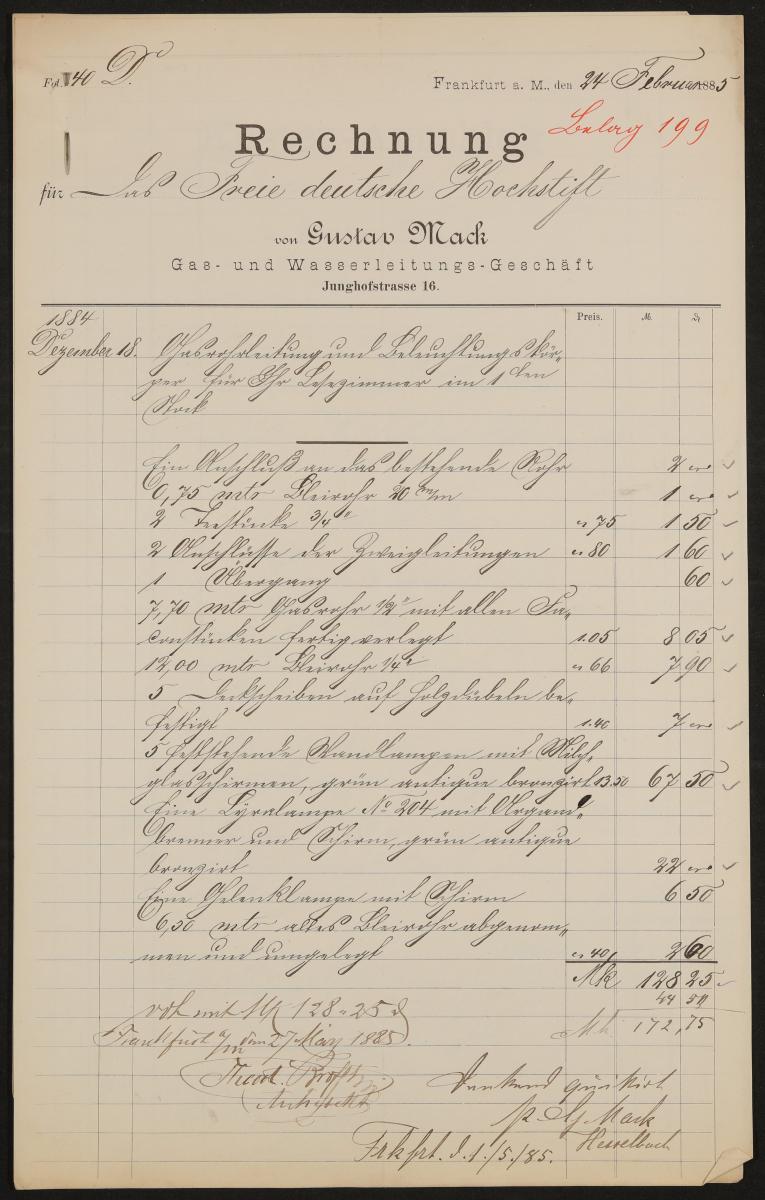 Fol. 40 D.
Frankfurt a. M., den 24 Februar 1885
Belag 199
Rechnung
für Das Freie deutsche Hochstift
von Gustav Mack
Gas- und Wasserleitungs-Geschäft
Junghofstrasse 16.
Preis. M. ₰
1884
Dezember 18. Gasrohrleitung und Beleuchtungskör-
per für Ihr Lesezimmer im 1 ten
Stock
Ein Anschluß an das bestehende Rohr 2
0,75 mtr Bleirohr 20 m/m 1
2 Teestücke 3/4" " 75 1 50
2 Anschlüsse der Zweigleitungen " 80 1 60
1 Übergang 60
7,70 mtr Gasrohr 1/2" mit allen Fa-
constücken fertig verlegt 1.05 8 05
12,00 mtr Bleirohr 1/4" " 66 7 90
5 Deckscheiben auf Holzdübeln be-
festigt 1.40 7
5 feststehende Wandlampen mit Milch-
glasschirmen, grün antique bronzirt 13.50 67 50
Eine Lyralampe No 204 mit Argand-
brenner und Schirm, grün antique
bronzirt 22
Eine Gelenklampe mit Schirm 6 50
6,50 mtr altes Bleirohr abgenom-
men und umgelegt " 40 2 60
Mk 128 25
44 50
Mk 172,75
mit Mk 128 " 25 ₰
Frankfurt a/m den 27 März 1885.
Theod.
Architekt
Dankend quittirt
p. G. Mack
Hesselbach
Frkfrt. d. 1./5./85.